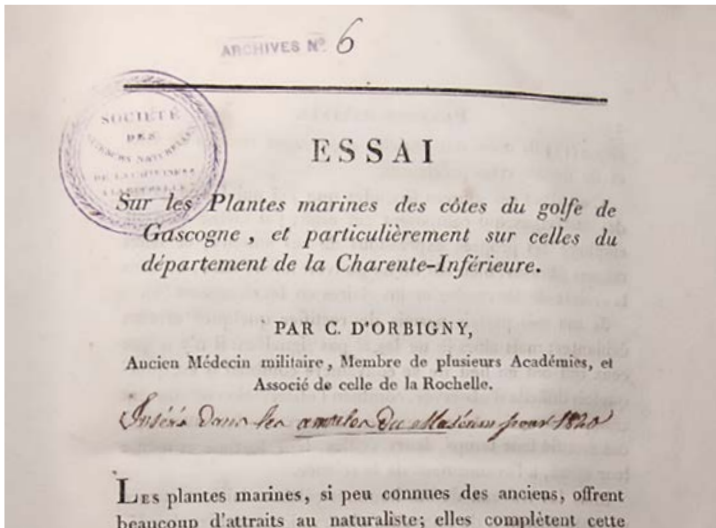 ARCHIVES Nº. 6
SOCIÉTÉ
DES
SCIENCES NATURELLES
ESSAI
Sur les Plantes marines des côtes du golfe de
Gascogne, et particulièrement sur celles du
département de la Charente-Inférieure.
PAR C. D'ORBIGNY,
Ancien Médecin militaire, Membre de plusieurs Académies, et
Associé de celle de la Rochelle.
Inséré dans les annales du Muséum pour 1820
LES plantes marines, si peu connues des anciens, offrent
beaucoup d'attraits au naturaliste; elles complètent cette